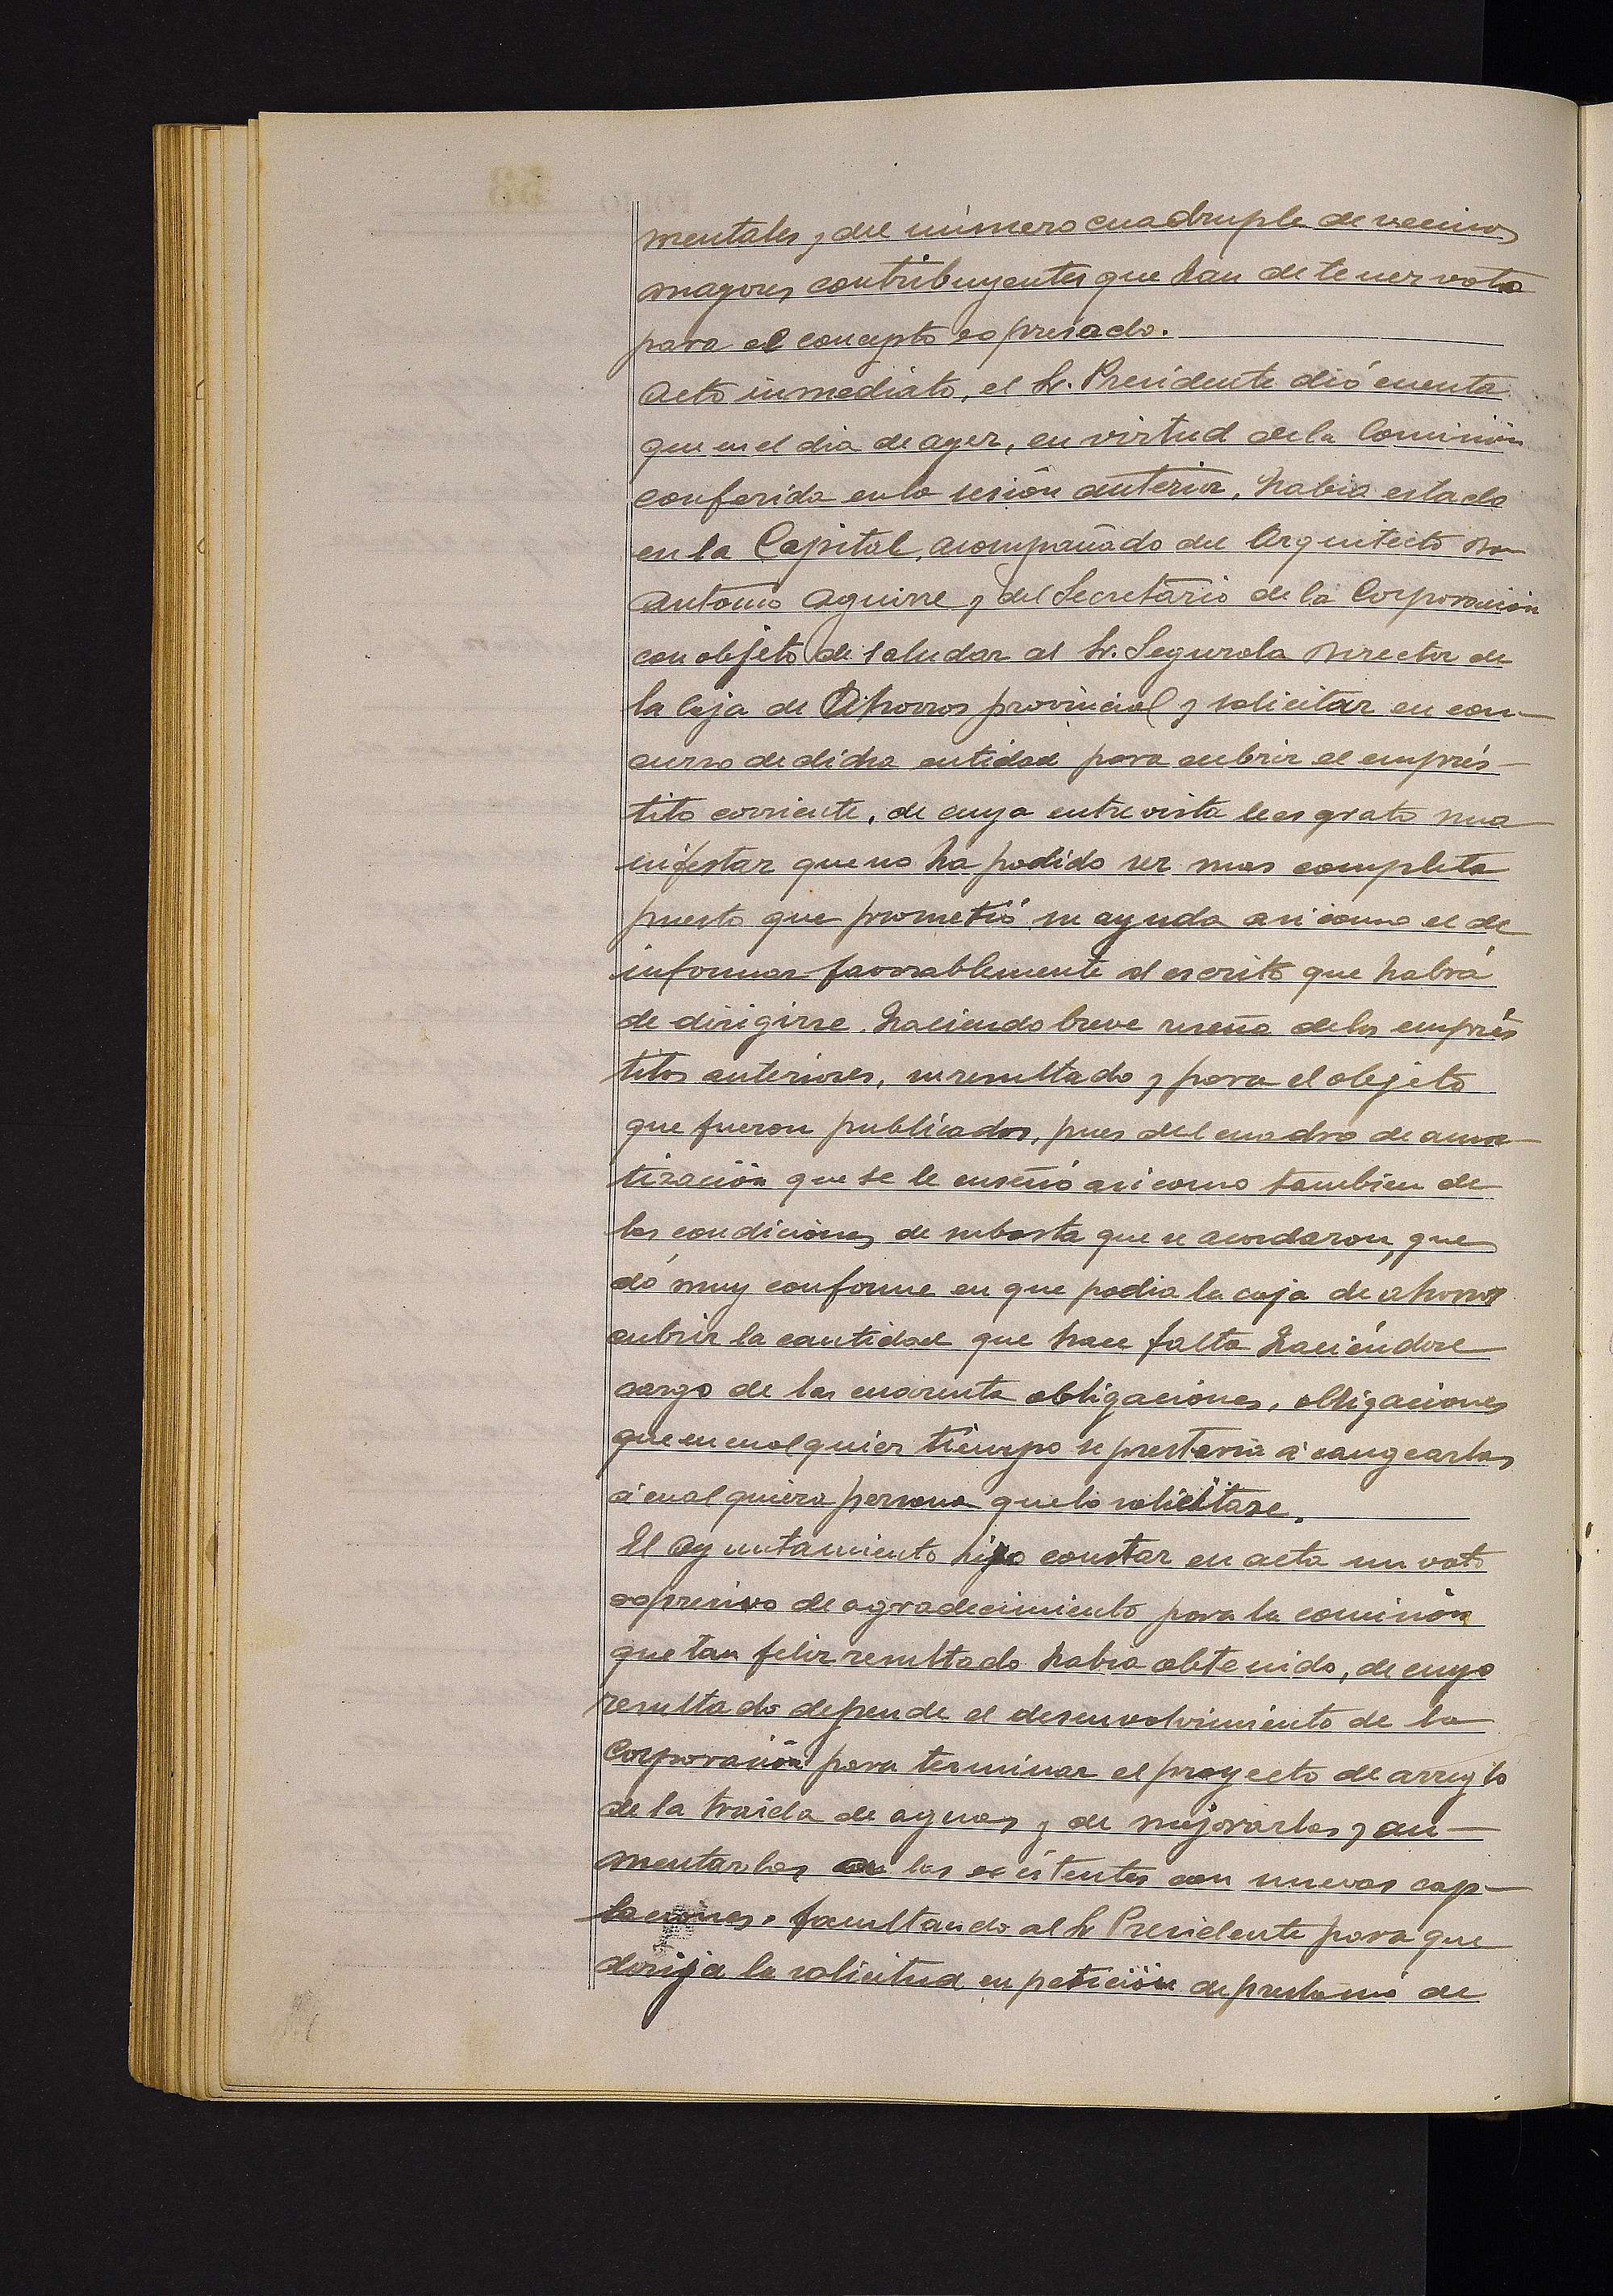 mentales, y del número cuadruple de vecinos
mayores contribuyentes que han de tener voto
para el concepto espresado.
Acto inmediato, el Sr. Presidente dió cuenta
que en el dia de ayer, en virtud de la Comisión
conferida en la sesión anterior, habia estado
en la Capital, acompañado del Arquitecto Don
Antonio Aguirre y del Secretario de la Corporación
con objeto de saludar al Sr. Segurola Director de
la Caja de Ahorros provincial y solicitar en con-
curso de dicha entidad para cubrir el emprés-
tito corriente, de cuya entrevista le es grato ma
nifestar que no ha podido ser mas completa
puesto que prometió su ayuda asi como el de
informar favorablemente el escrito que habrá
de dirigirse. Haciendo breve reseña de los emprés
titos anteriores, su resultado y para el objeto
que fueron publicados, pues del cuadro de amor-
tización que se le enseñó asi como tambien de
las condiciones de subasta que se acordaron, que
dó muy conforme en que podia la caja de ahorros
cubrir la cantidad que hace falta haciéndose
cargo de las cuarenta obligaciones, obligaciones
que en cualquier tiempo se prestaria á cangearlas
á cualquiera persona que lo solicitase.
El Ayuntamiento hizo constar en acta un voto
espresivo de agradecimiento para la comisión
que tan feliz resultado habia obtenido, de cuyo
resultado depende el desenvolvimiento de la
Corporación para terminar el proyecto de arreglo
de la traida de aguas y de mejorarlas y au-
mentarlas las existentes con nuevas cap-
taciones, facultando al Sr Presidente para que
dirija la solicitud en petición de prestamo de